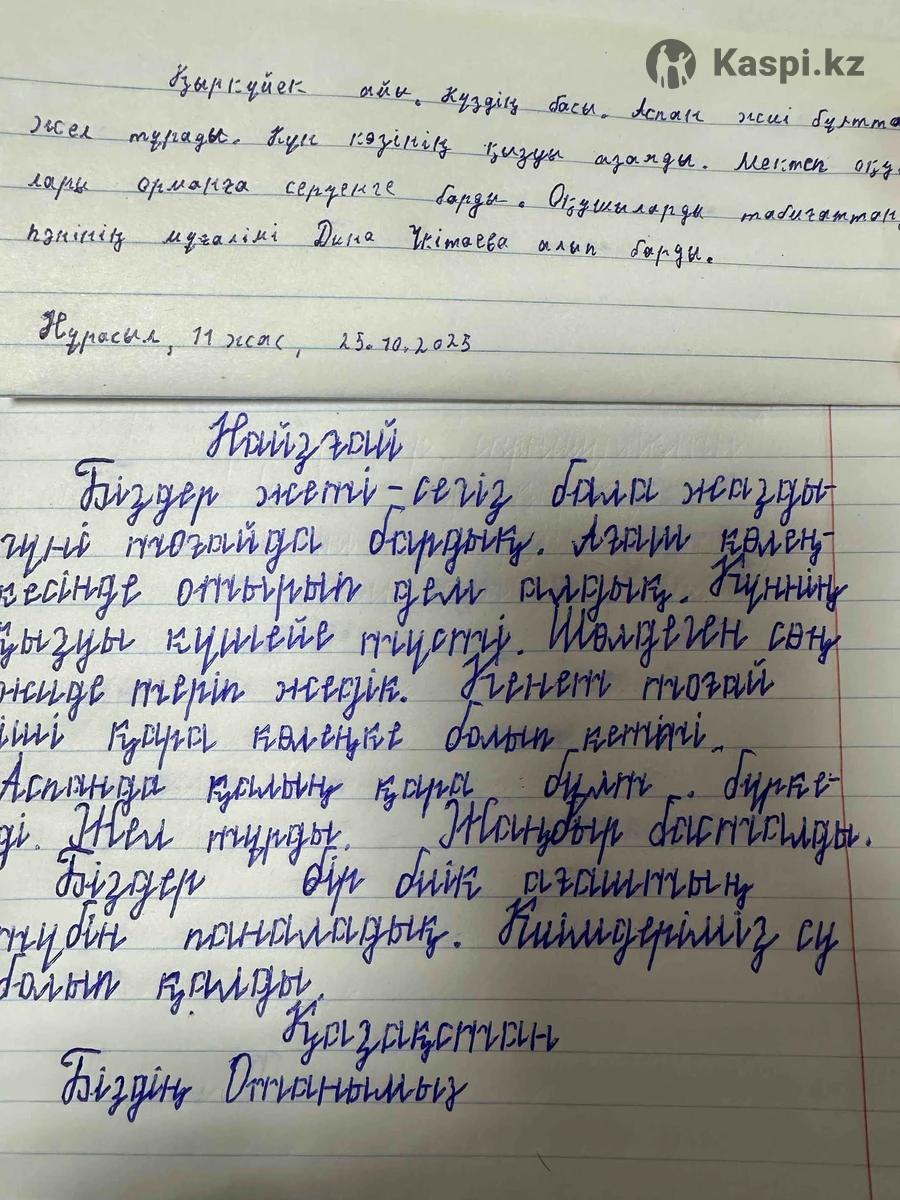 Kaspi.kz
Қыркүйек айы. Күздің басы. Аспан жиі бұлтта
жел тұрады. Күн көзінің қызуы азаяды. Мектеп оқу
лары орманға серуенге барды. Оқушыларды табиғаттан
пәнінің мұғалімі Дина барды алып барды.
Нұрасыл, 11 жас, 25.10.2025
Найзғай
Біздер жеті-сегіз бала жазды-
гүні тоғайда бардық. Ағаш көлең-
кесінде отырып дем алдық. Күннің
қызуы күшейе түсті. Шөлдеген соң
жиде теріп жедік. Кенет тоғай
іші қара көлеңке болып кетті.
Аспанда қалың қара бұлт. бүрке-
ді. Жел тұрды. Жаңбыр басталды.
Біздер бір биік ағаштың
түбін паналадық. Киімдеріміз су
болып қалды.
Қазақстан
Біздің Отанымыз